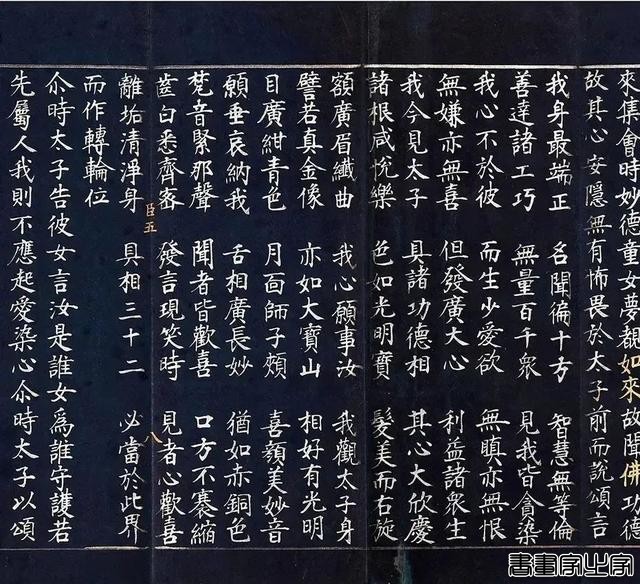 來集會時妙德童女夢覩如來故聞佛功德
故其心安隱無有怖畏於太子前而說頌言
我身最端正 名聞徧十方 智慧無等倫
善達諸工巧 無量百千衆 見我皆貪染
我心不於彼 而生少愛欲 無瞋亦無恨
無嫌亦無喜 但發廣大心 利益諸衆生
我今見太子 具諸功德相 其心大欣慶
諸根咸悅樂 色如光明寶 髮美而右旋
額廣眉纖曲 我心願事汝 我觀太子身
譬若真金像 亦如大寶山 相好有光明
目廣紺青色 月面師子頰 喜顏美妙音
願垂哀納我 舌相廣長妙 猶如赤銅色
梵音緊那聲 聞者皆歡喜 口方不褰縮
齒白悉齊密 發言現笑時 見者心歡喜
臣五 八
離垢清淨身 具相三十二 必當於此界
而作轉輪位
尒時太子告彼女言汝是誰女爲誰守護若
先屬人我則不應起愛染心尒時太子以頌
書畫家之家